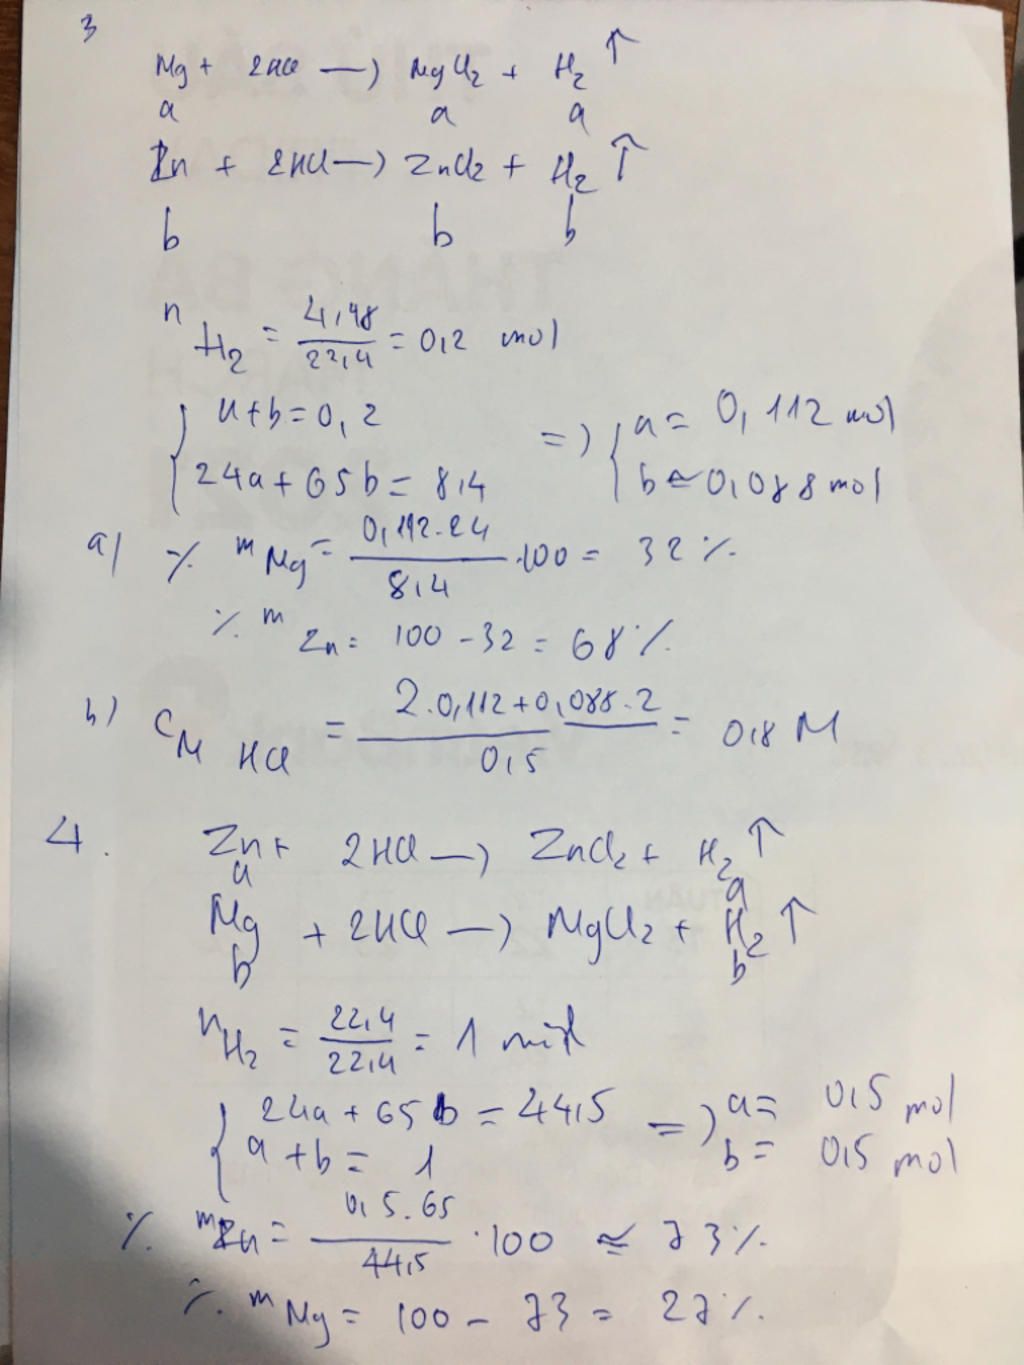 3
Mg + 2HCl —) MgCl2 + H2 ↑
a a a
Zn + 2HCl —) ZnCl2 + H2 ↑
b b b
n H2 = 4,48 / 22,4 = 0,2 mol
{ a+b = 0,2 =) { a = 0,112 mol
24a + 65b = 8,4 b ≃ 0,088 mol
a) % m Mg = 0,112.24 / 8,4 .100 = 32 %
% m Zn = 100 - 32 = 68 %
b) CM HCl = 2.0,112 + 0,088.2 / 0,5 = 0,8 M
4. Zn + 2HCl —) ZnCl2 + H2 ↑
a a
Mg + 2HCl —) MgCl2 + H2 ↑
b b
n H2 = 22,4 / 22,4 = 1 mol
{ 24a + 65b = 44,5 =) a = 0,5 mol
a + b = 1 b = 0,5 mol
% m Zn = 0,5.65 / 44,5 .100 ≃ 73 %
% m Mg = 100 - 73 = 27 %